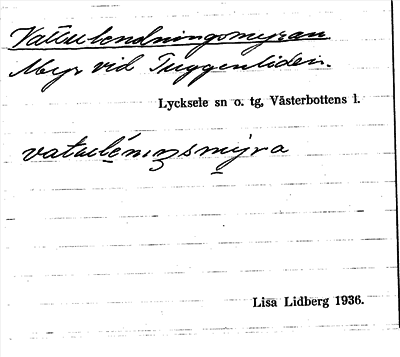 Vattulendningsmyran
Myr vid Tuggenliden.
Lycksele sn o. tg, Västerbottens l.
vatulénıŋsmyra
Lisa Lidberg 1936.